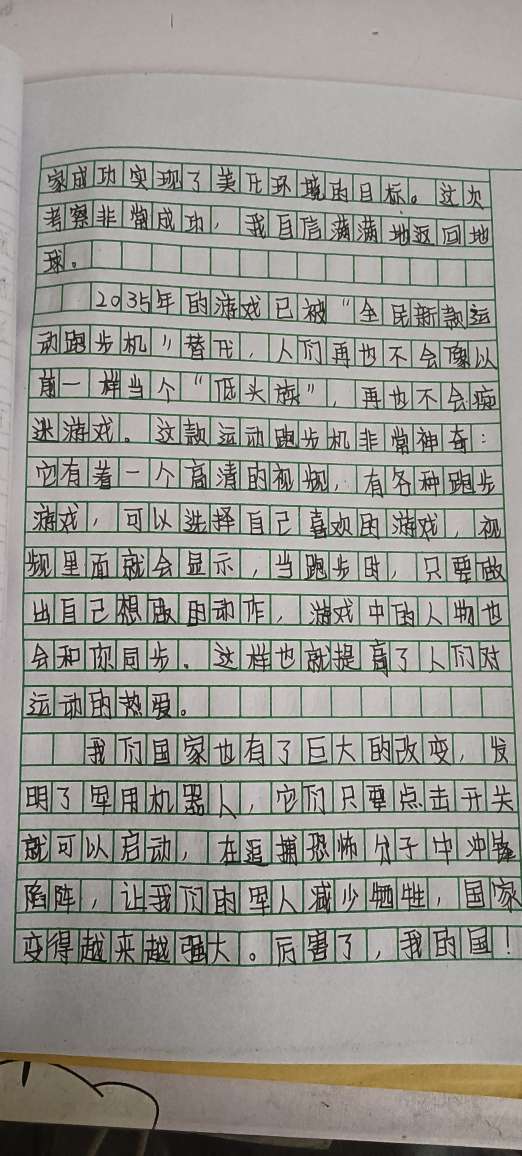 家成功实现了美化环境的目标。这次
考察非常成功，我自信满满地返回地
球。
2035年的游戏已被“全民新款运
动跑步机”替代，人们再也不会像以
前一样当个“低头族”，再也不会痴
迷游戏。这款运动跑步机非常神奇：
它有着一个高清的视频，有各种跑步
游戏，可以选择自己喜欢的游戏，视
频里面就会显示，当跑步时，只要做
出自己想做的动作，游戏中的人物也
会和你同步。这样也就提高了人们对
运动的热爱。
我们国家也有了巨大的改变，发
明了军用机器人，它们只要点击开关
就可以启动，在追捕恐怖分子中冲锋
陷阵，让我们的军人减少牺牲，国家
变得越来越强大。厉害了，我的国！